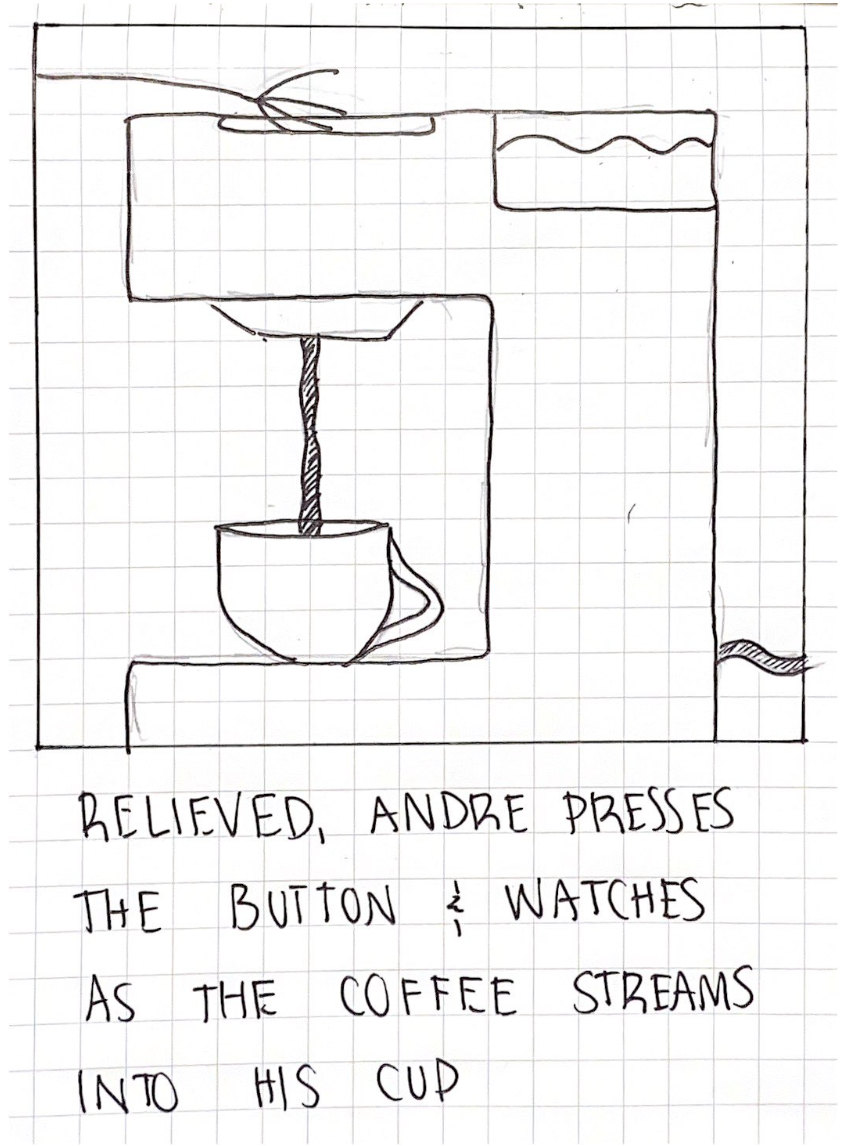 RELIEVED, ANDRE PRESSES
THE BUTTON & WATCHES
AS THE COFFEE STREAMS
INTO HIS CUP